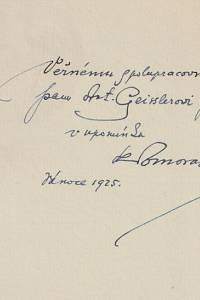 Věrnému spolupracovn
panu Ant. Geisslerovi
v upomínku
Vánoce 1925.